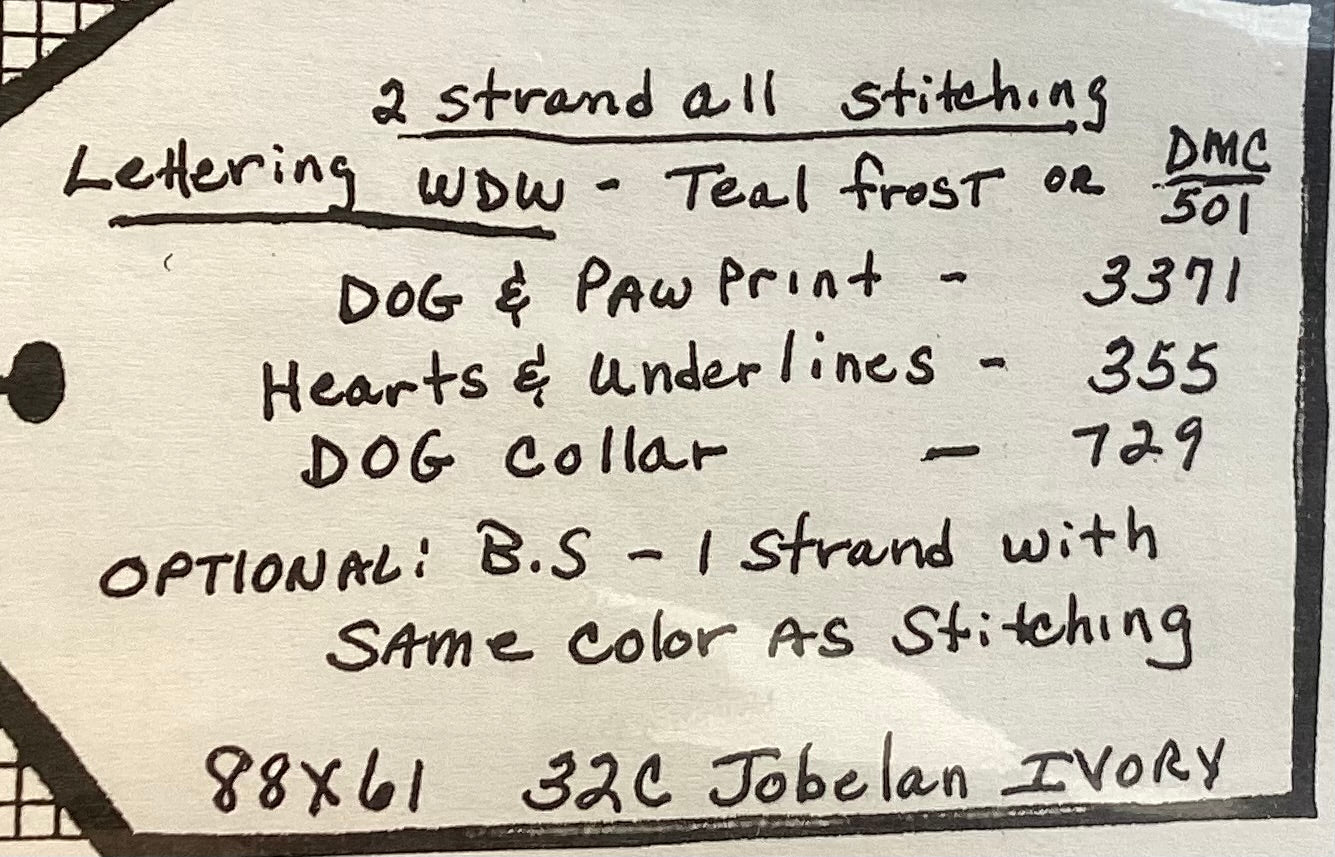 2 strand all stitching
Lettering WDW - Teal frost OR DMC 501
DOG & PAW Print - 3371
Hearts & Underlines - 355
DOG Collar - 729
OPTIONAL: B.S - 1 Strand with
SAMe Color AS Stitching
88X61 32C Jobelan IVORY